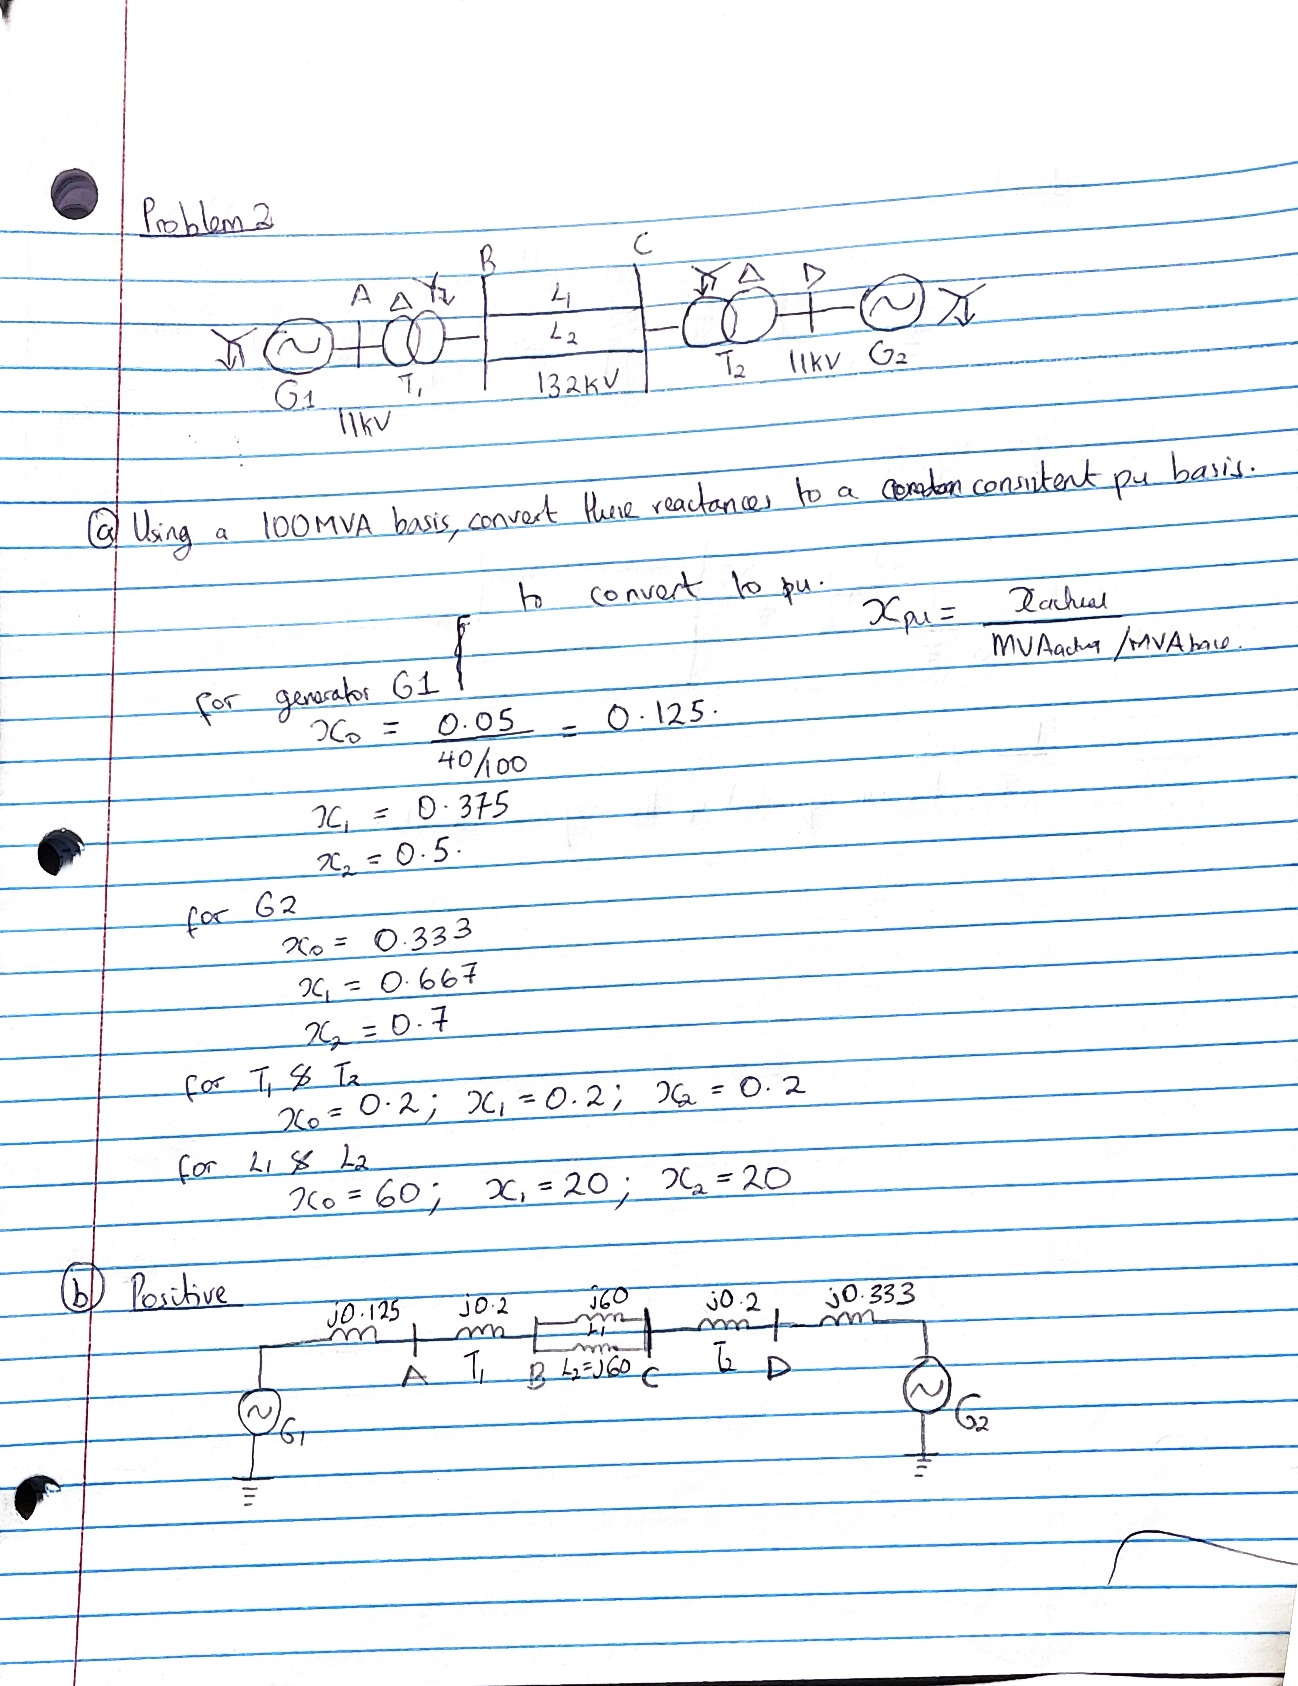 Problem 2
B C
A Δ Y Y Δ D
L1
L2
G1 T1 132kV T2 11kV G2
11kV
(a) Using a 100MVA basis, convert these reactances to a consistent pu basis.
to convert to pu. Xpu = Xactual / (MVAactual / MVAbase).
for generator G1
x0 = 0.05 / (40/100) = 0.125.
x1 = 0.375
x2 = 0.5.
for G2
x0 = 0.333
x1 = 0.667
x2 = 0.7
for T1 & T2
x0 = 0.2; x1 = 0.2; x2 = 0.2
for L1 & L2
x0 = 60; x1 = 20; x2 = 20
(b) Positive
j0.125 j0.2 j60 j0.2 j0.333
L1
A T1 B L2=j60 C T2 D
G1 G2